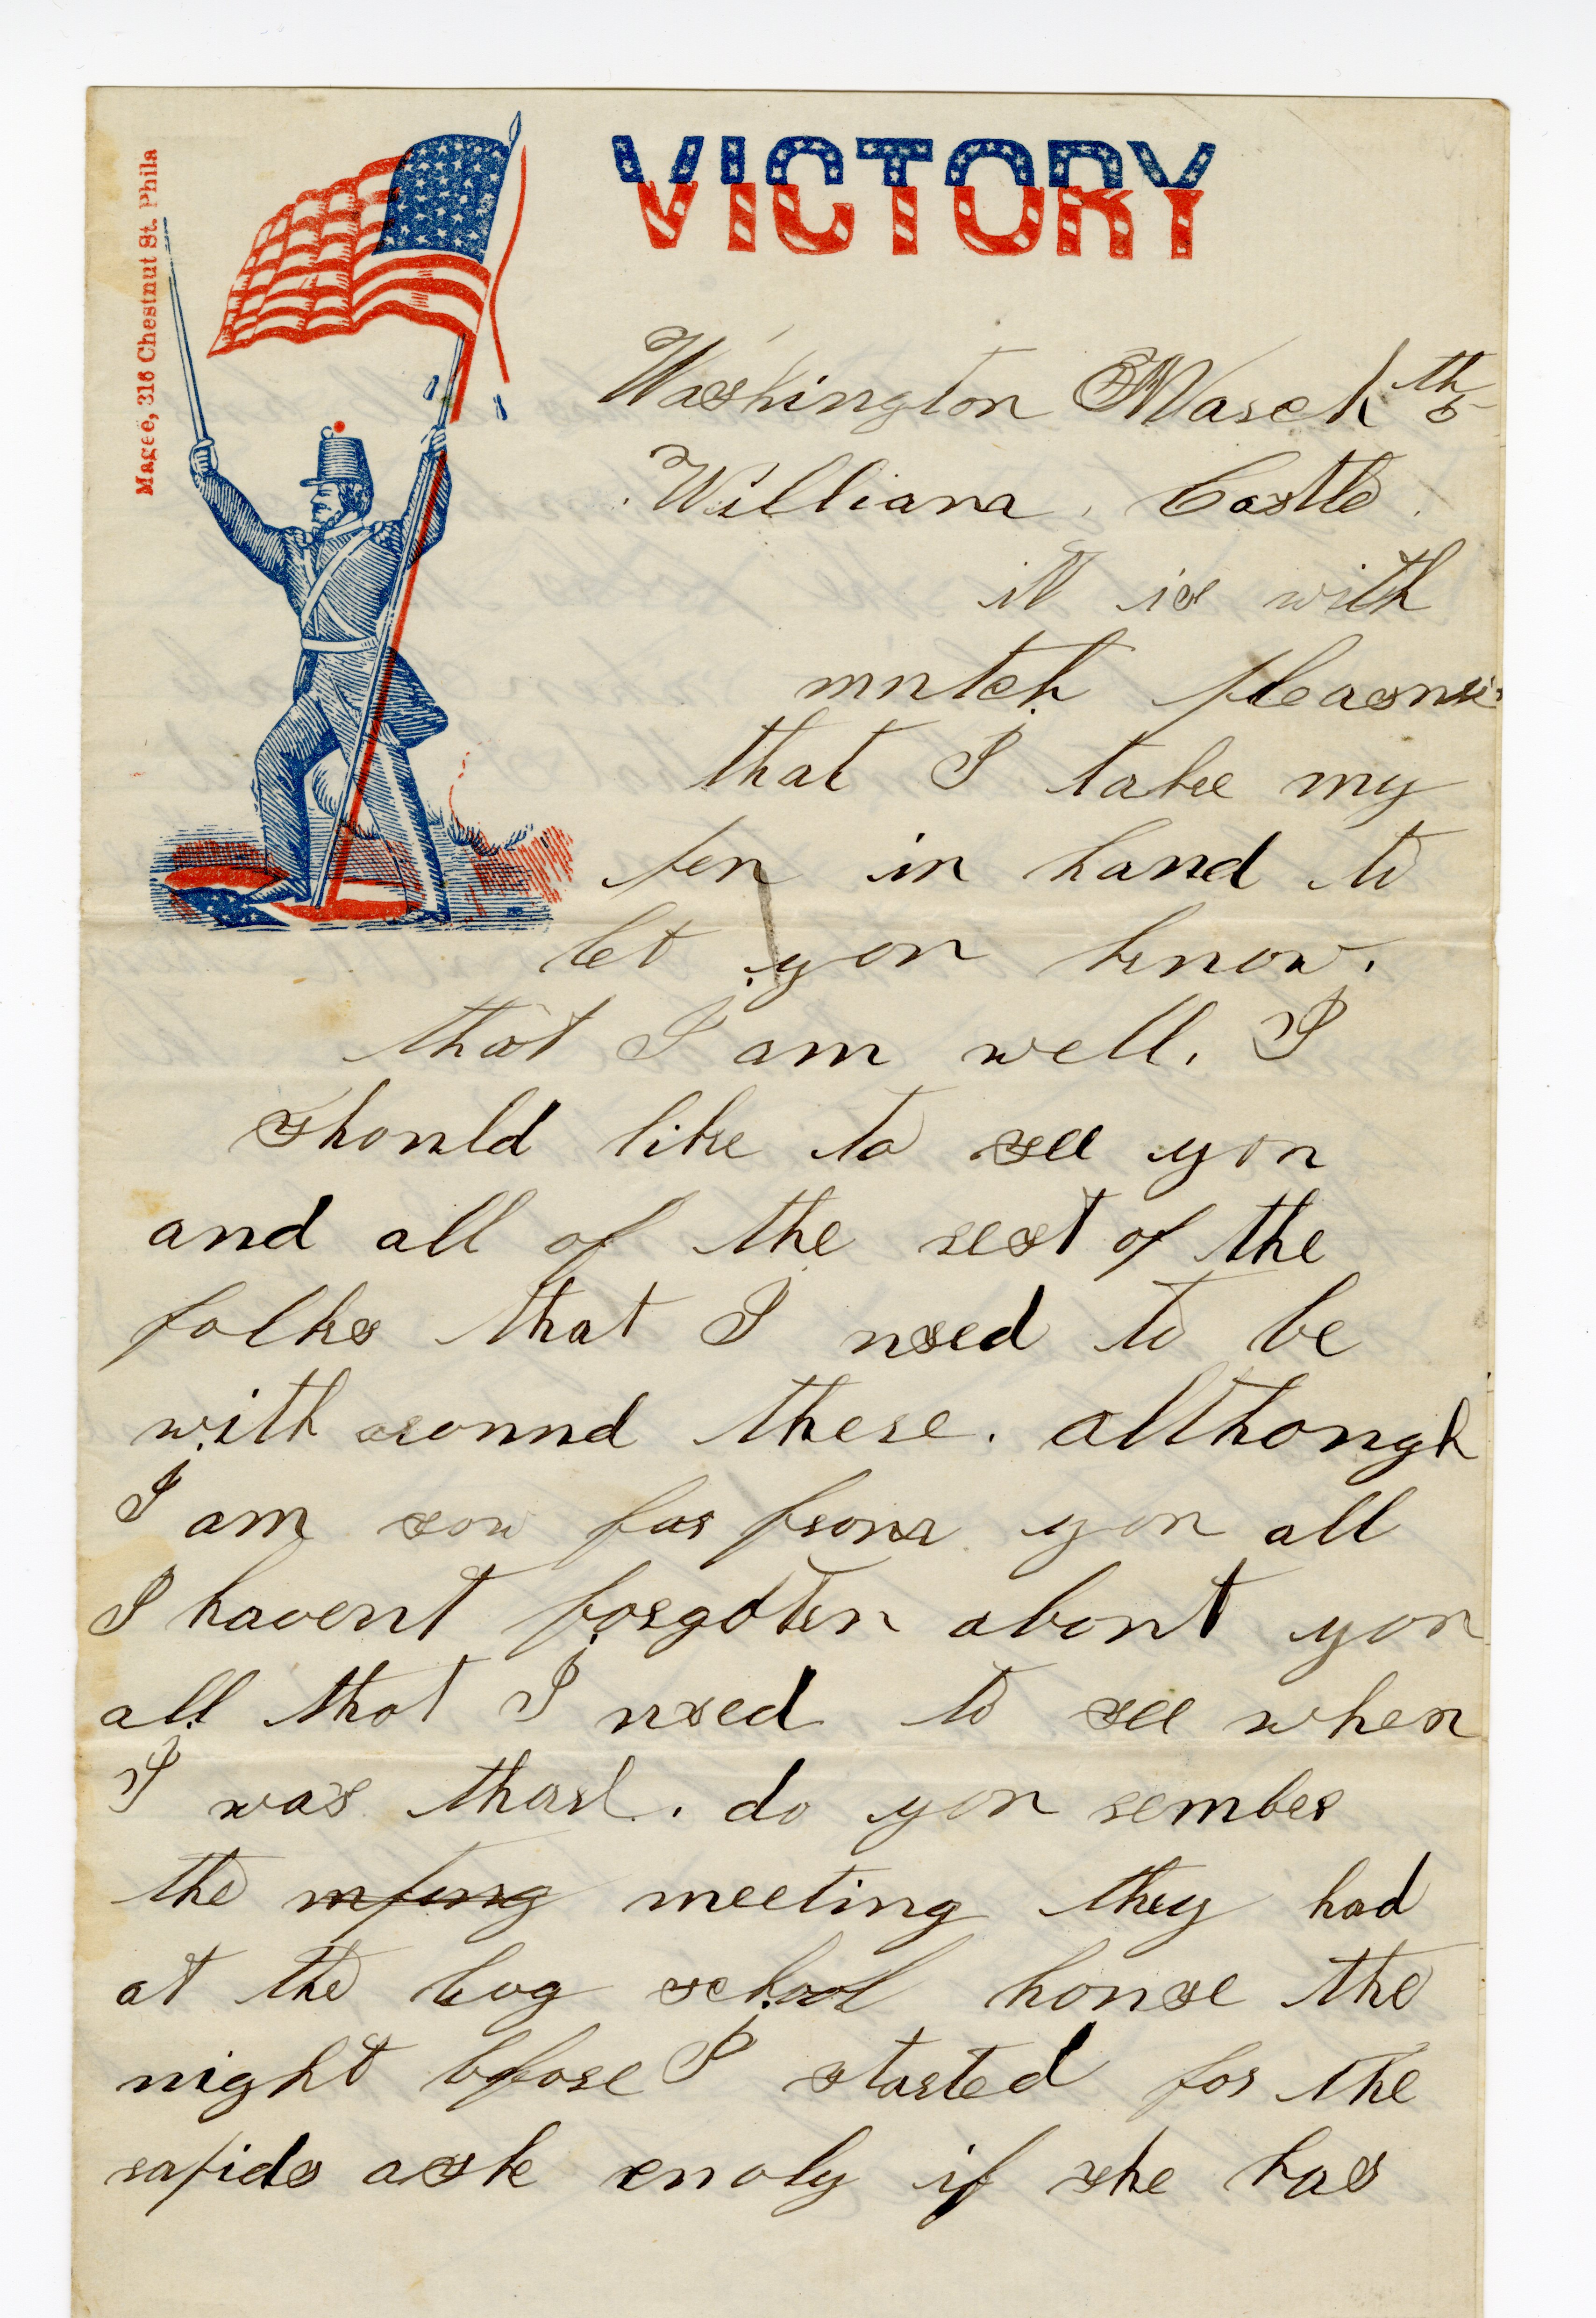 VICTORY
Magee, 316 Chestnut St. Phila
Washington March 5th
William. Castle.
it is with
mutch pleasure
that I take my
pen in hand to
let you know.
that I am well. I
should like to see you
and all of the rest of the
folks that I used to be
with around there. allthough
I am sow far from you all
I havent forgoten about you
all that I used to see when
I was thare. do you rember
the meeting they had
at the log school house the
night bfore I started for the
rapids ask emoly if she has